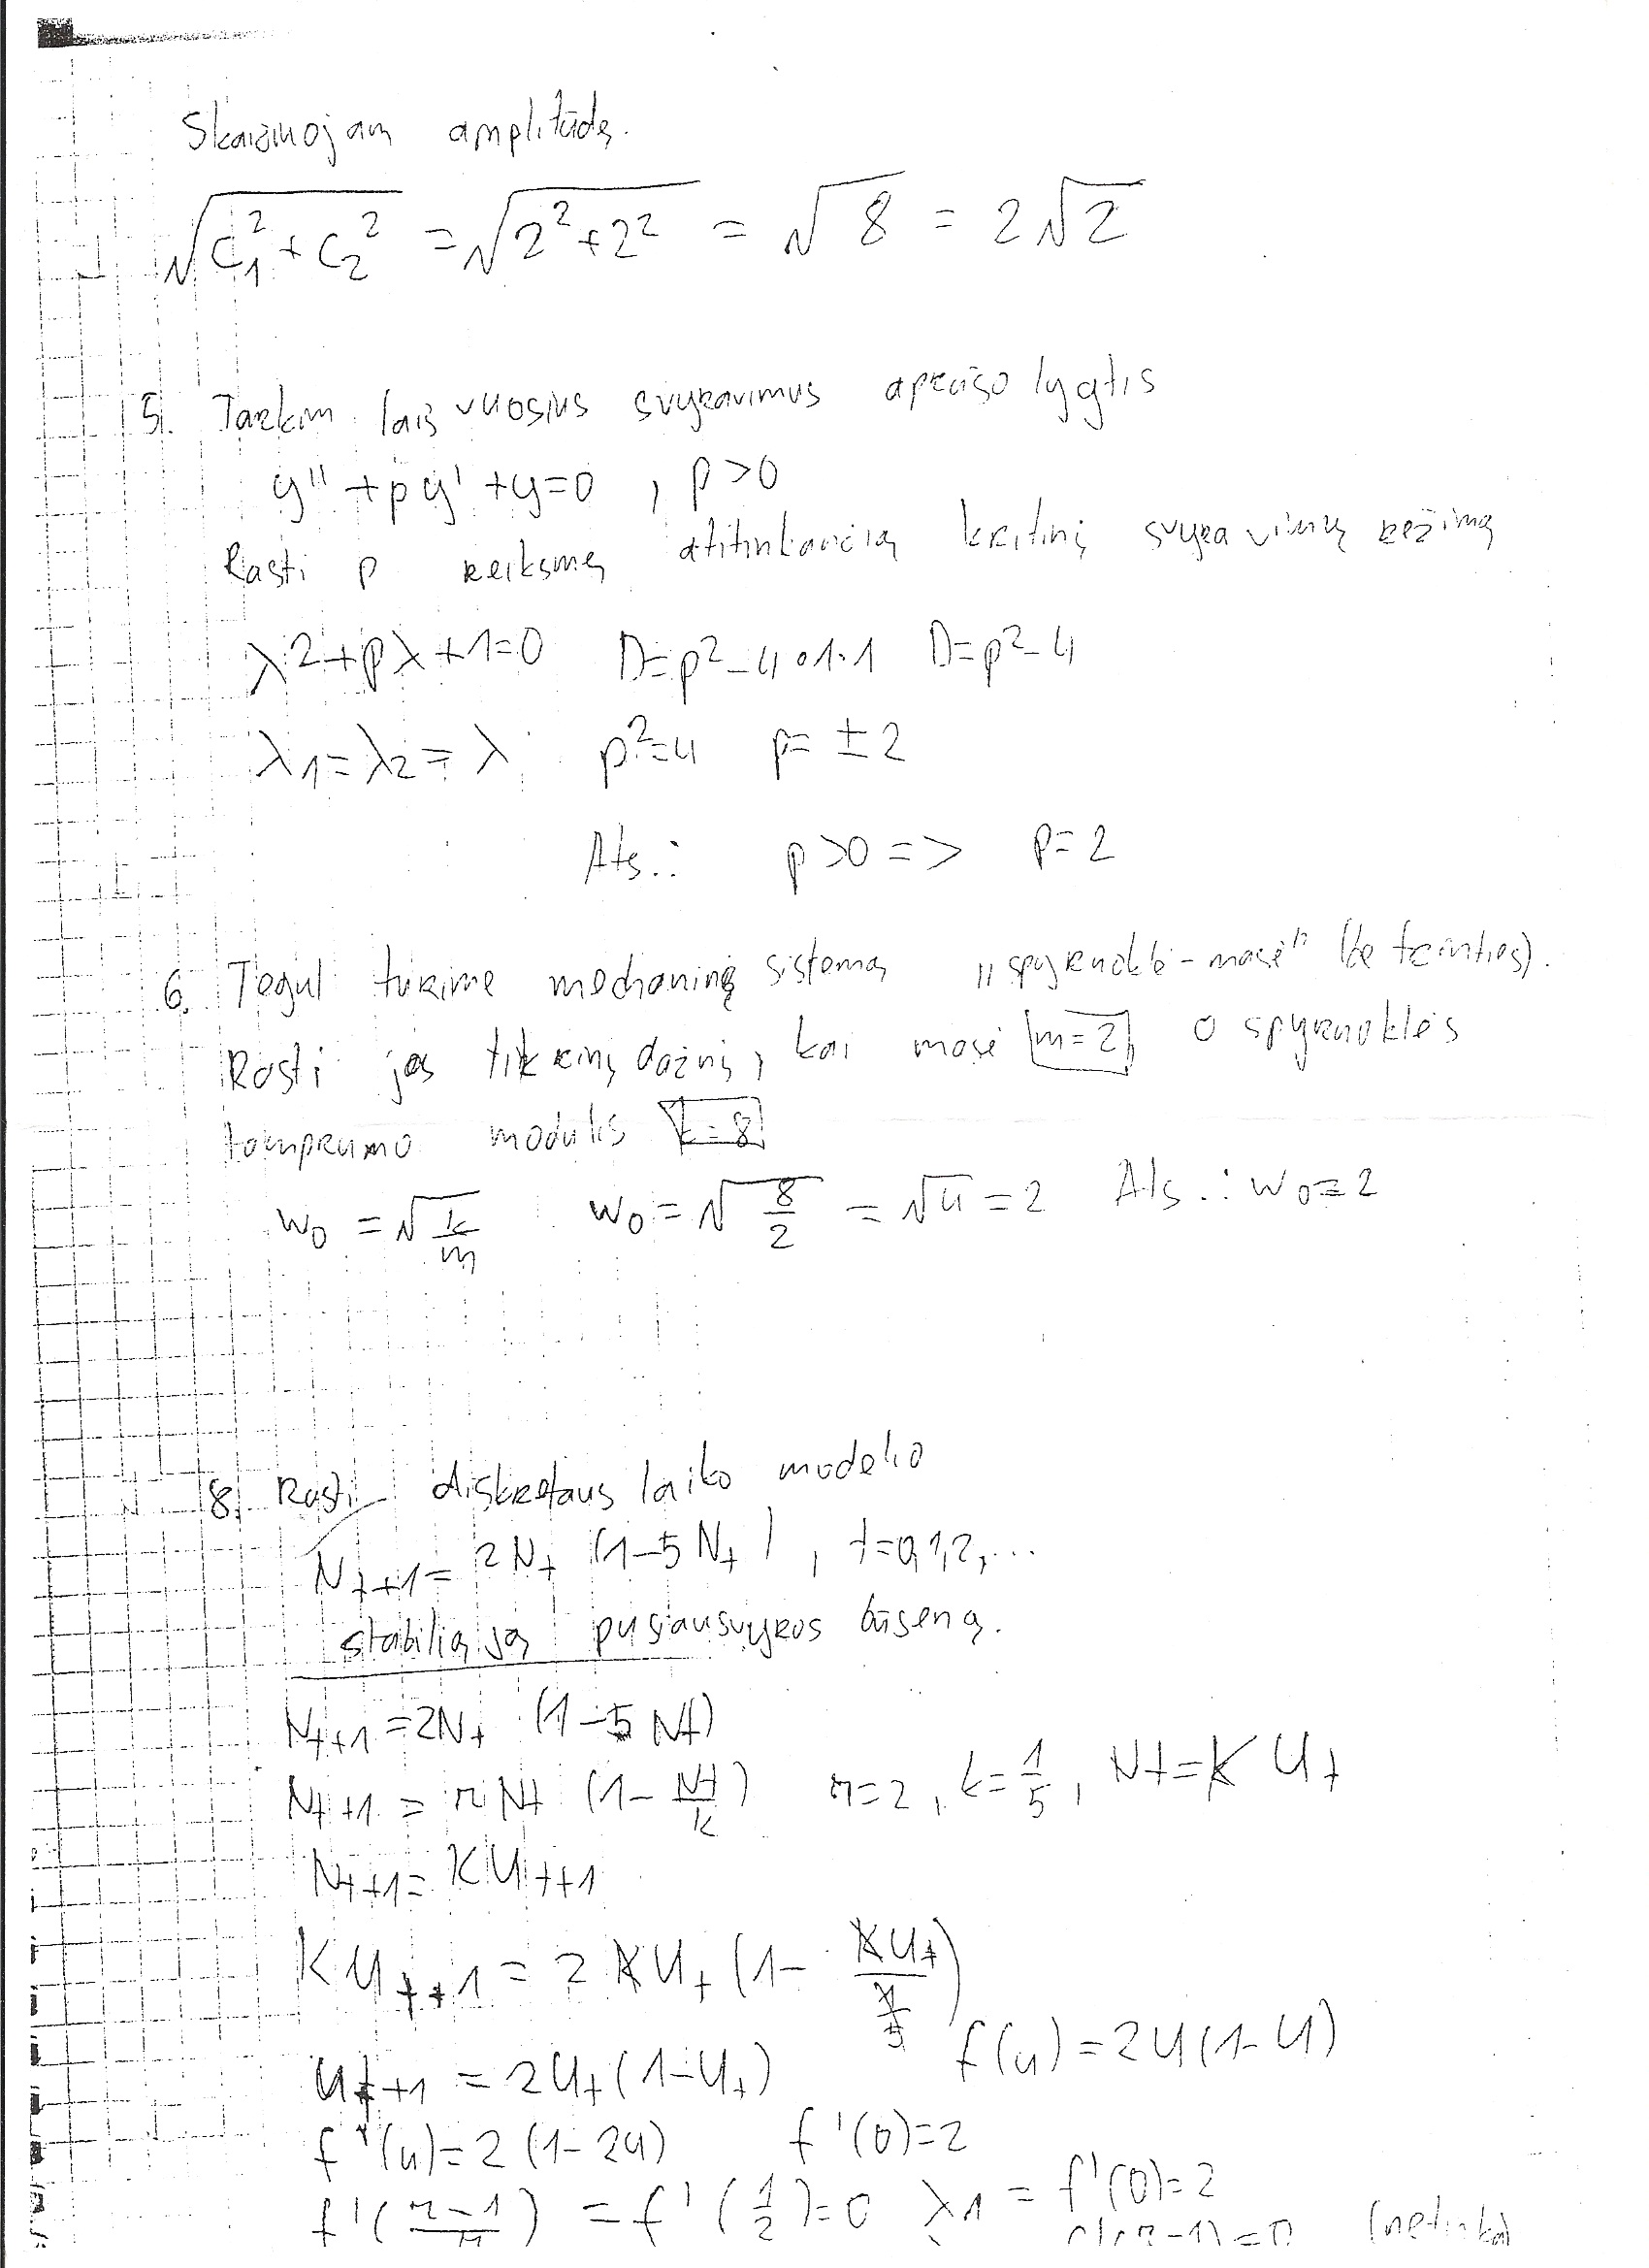 Skaičiuojam amplitūdę.
√(c₁² + c₂²) = √(2² + 2²) = √8 = 2√2
5. Tarkim laisvuosius svyravimus aprašo lygtis
y'' + py' + y = 0 , p > 0
Rasti p reikšmę atitinkančią kritinį svyravimų režimą
λ² + pλ + 1 = 0 D = p² - 4·1·1 D = p² - 4
λ₁ = λ₂ = λ p² = 4 p = ±2
Ats.: p > 0 => p = 2
6. Tegul turime mechaninę sistemą „spyruoklė - masė" (be trinties).
Rasti jos tikrinį dažnį, kai masė m = 2, o spyruoklės
tamprumo modulis k = 8
w₀ = √(k/m) w₀ = √(8/2) = √4 = 2 Ats.: w₀ = 2
8. Rasti diskretaus laiko modelio
Nₜ₊₁ = 2Nₜ (1 - 5Nₜ) , t = 0,1,2,...
stabiliąją pusiausvyros būseną.
Nₜ₊₁ = 2Nₜ (1 - 5Nₜ)
Nₜ₊₁ = rNₜ (1 - Nₜ/k) r = 2, k = 1/5, Nₜ = K Uₜ
Nₜ₊₁ = KUₜ₊₁
KUₜ₊₁ = 2KUₜ (1 - KUₜ/(1/5))
Uₜ₊₁ = 2Uₜ(1 - Uₜ) f(u) = 2U(1 - U)
f'(u) = 2(1 - 2u) f'(0) = 2
f'((r-1)/r) = f'(1/2) = 0 λ₁ = f'(0) = 2
(netinka)